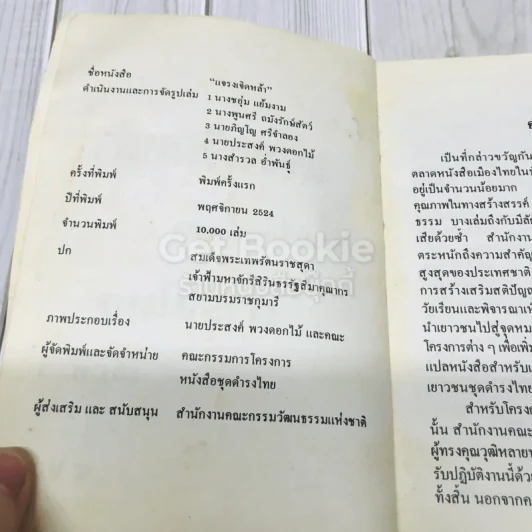 ชื่อหนังสือ "แจรงเจิดหล้า"
ดำเนินงานและการจัดรูปเล่ม 1 นางชอุ่ม แย้มงาม
2 นางพูนศรี ถมังรักษ์สัตว์
3 นายภิญโญ ศรีจำลอง
4 นายประสงค์ พวงดอกไม้
5 นางสำรวล อ่ำพันธุ์
ครั้งที่พิมพ์ พิมพ์ครั้งแรก
ปีที่พิมพ์ พฤศจิกายน 2524
จำนวนพิมพ์ 10,000 เล่ม
ปก สมเด็จพระเทพรัตนราชสุดา
เจ้าฟ้ามหาจักรีสิรินธรรัฐสีมาคุณากร
สยามบรมราชกุมารี
ภาพประกอบเรื่อง นายประสงค์ พวงดอกไม้ และคณะ
ผู้จัดพิมพ์และจัดจำหน่าย คณะกรรมการโครงการ
หนังสือชุดดำรงไทย
ผู้ส่งเสริม และ สนับสนุน สำนักงานคณะกรรมวัฒนธรรมแห่งชาติ
Get Bookie
เป็นที่กล่าวขวัญกัน
ตลาดหนังสือเมืองไทยใน
อยู่เป็นจำนวนน้อยมาก
คุณภาพในทางสร้างสรรค์
ธรรม บางเล่มถึงกับมี
เสียด้วยซ้ำ สำนักงาน
ตระหนักถึงความสำคัญ
สูงสุดของประเทศชาติ
การสร้างเสริมสติปัญ
วัยเรียนและพิจารณาเห็
นำเยาวชนไปสู่จุดหม
โครงการต่าง ๆ เพื่อเพิ่ม
แปลหนังสือสำหรับเ
เยาวชนชุดดำรงไทย
สำหรับโครง
นั้น สำนักงานคณะ
ผู้ทรงคุณวุฒิหลาย
รับปฏิบัติงานนี้ด้วย
ทั้งสิ้น นอกจากค